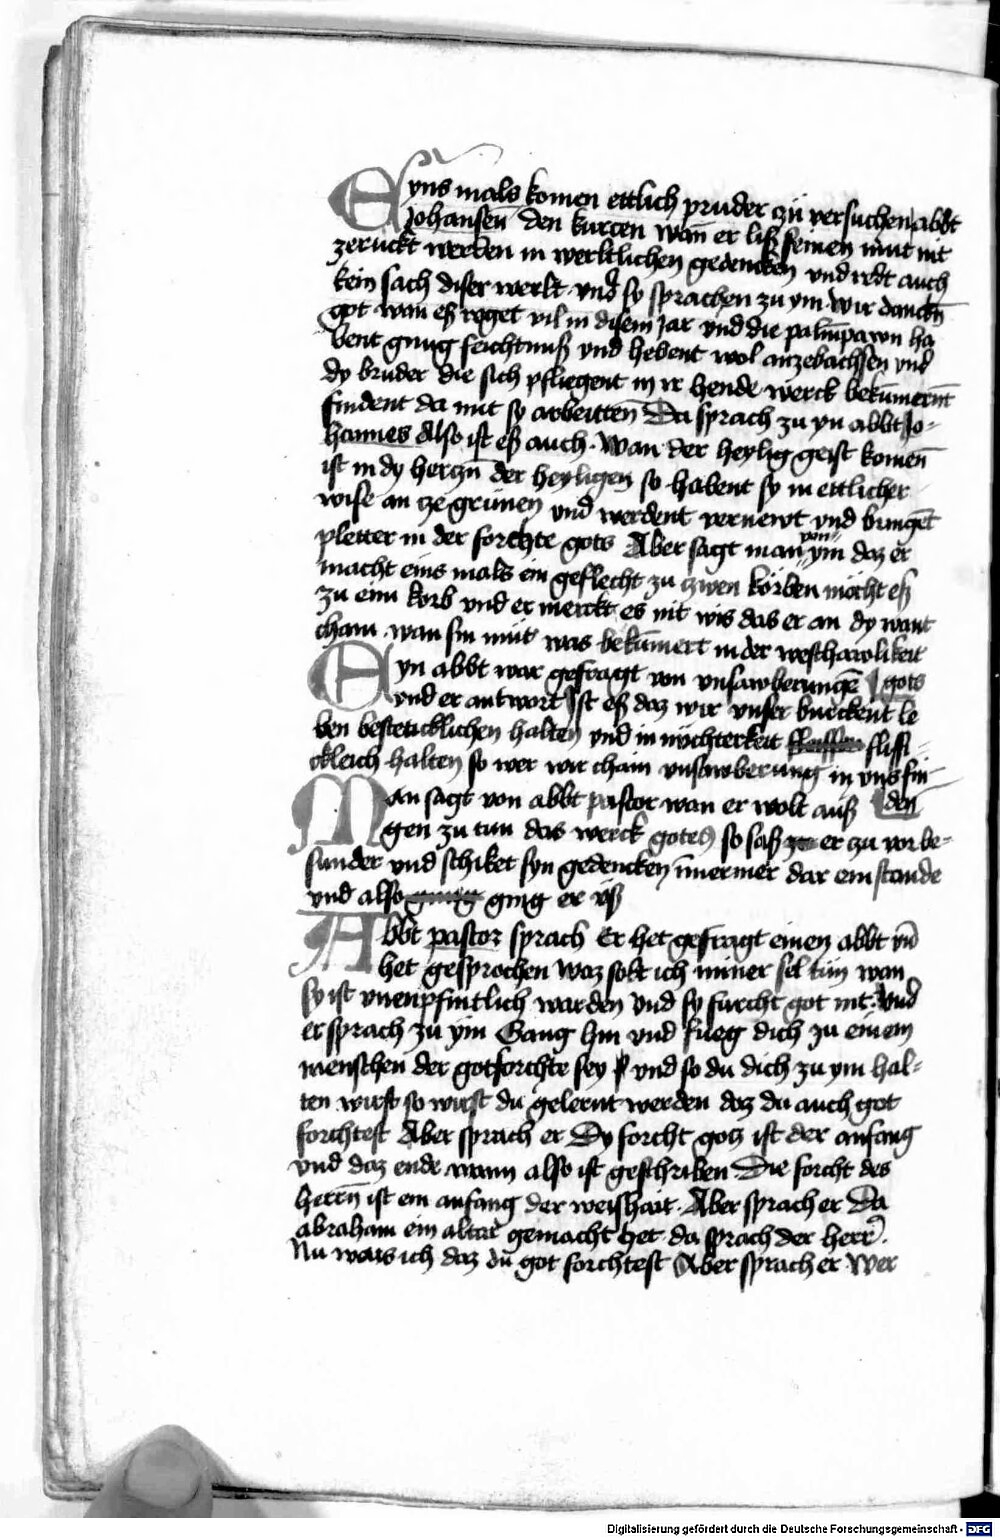 Eyns mals komen ettlich pruder zü versuchen abbt
Johansen den kurcen wan er liß seinen müt nit
zeruckt werden in werltlichen gedencken vnd redt auch
kein sach diser werlt vnd so sprachen zu ym wir dancken
got wan eß reget vil in disem jar vnd die palmpawm ha
bent gnug feichtnuß vnd hebent wol anzebachsen vnd
dy bruder die sich pfliegent in ir hende werck bekümernt
findent da mit sy arbeitten Da sprach zu yn abbt Jo-
hannes Also ist eß auch. Wan der heylig geist komen
ist in dy herczn der heyligen so habent sy in ettlicher
wise an ze grünen vnd werdent vernewt vnd bringet
pletter in der forchte gots Aber sagt man von ym daz er
macht eins mals ein geflecht zu zwen körben möcht eß
zu eim korb vnd er merckt es nit wis das er an dy want
cham wan sin müt was bekümert in der weschawlikeit
Eyn abbt war gefragt von vnsawberungen gots
vnd er antwort Ist eß daz wir vnser buckent le
ben bestetticklichen halten vnd in nüchterkeit flissi-
ckleich halten so wer wir cham vnsawberung in vns fin-
Man sagt von abbt pastor wan er wolt auß den
gen zu tun das werck gotes so saß er zu vor be-
sunder vnd schiket syn gedencken immermer dar ein stunde
vnd also ging er vß
Abbt pastor sprach Er het gefragt einen abbt vnd
het gesprochen waz solt ich miner sel tün wan
sy ist vnenpfintlich warden vnd sy furcht got nit. Vnd
er sprach zu ym Gang hin vnd fueg dich zu einem
menschen der gotforchte sey vnd so du dich zu ym hal-
ten wirst so wirst du gelernt werden daz du auch got
forchtest Aber sprach er Dy forcht gotz ist der anfang
vnd daz ende wann also ist geschriben Die forcht des
herrn ist ein anfang der weishait. Aber sprach er Da
abraham ein altar gemacht het da sprach der herr.
Nu wais ich daz du got forchtest Aber sprach er Wer
Digitalisierung gefördert durch die Deutsche Forschungsgemeinschaft - DFG